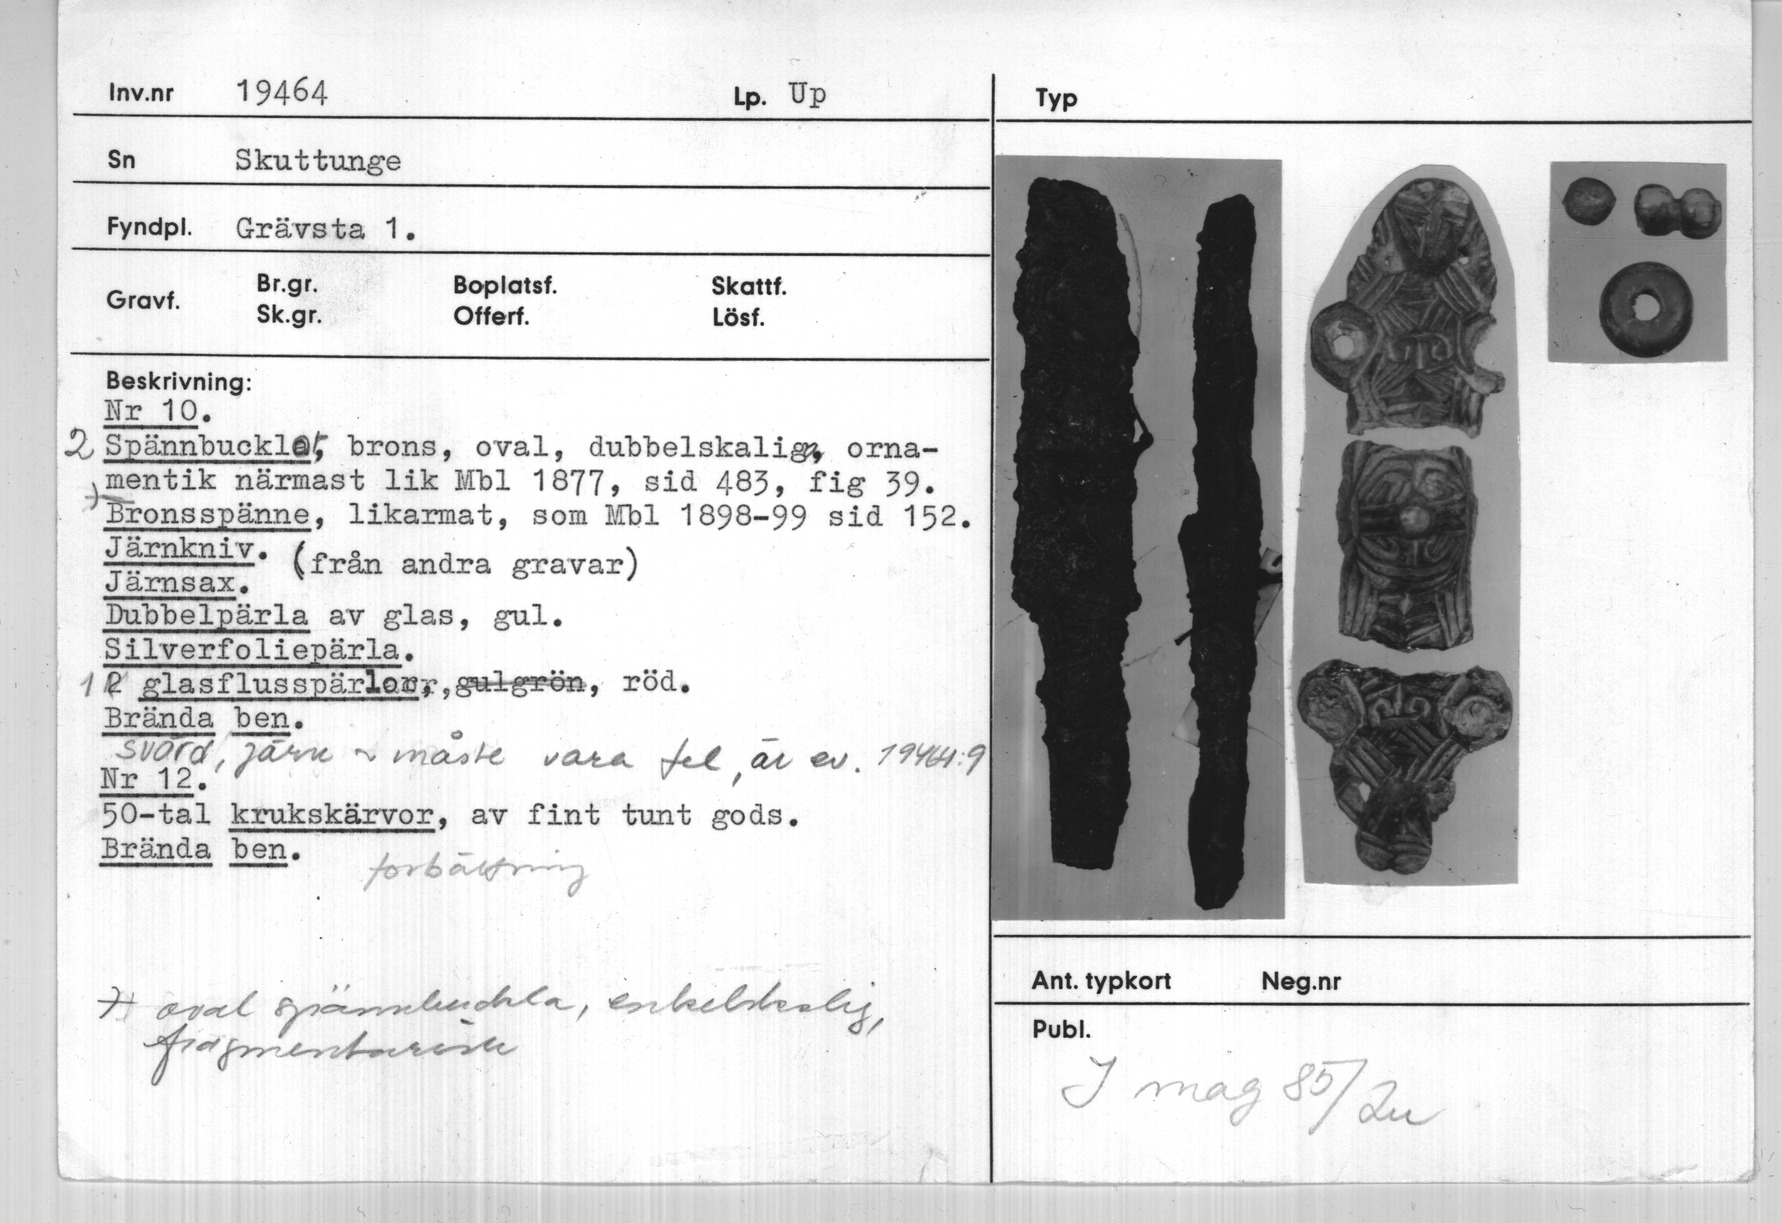 Inv.nr 19464 Lp. Up
Sn Skuttunge
Fyndpl. Grävsta 1.
Gravf. Br.gr. Boplatsf. Skattf.
Sk.gr. Offerf. Lösf.
Beskrivning:
Nr 10.
2 Spännbucklor, brons, oval, dubbelskaliga, orna-
mentik närmast lik Mbl 1877, sid 483, fig 39.
+ Bronsspänne, likarmat, som Mbl 1898-99 sid 152.
Järnkniv.
(från andra gravar)
Järnsax.
Dubbelpärla av glas, gul.
Silverfoliepärla.
1 2 glasflusspärlor, gulgrön, röd.
Brända ben.
svärd, järn ~ måste vara fel, är ev. 19464:9
Nr 12.
50-tal krukskärvor, av fint tunt gods.
Brända ben.
+ oval spännbuckla, enkelskalig,
fragmentarisk
Typ
Ant. typkort Neg.nr
Publ.
I mag 85/